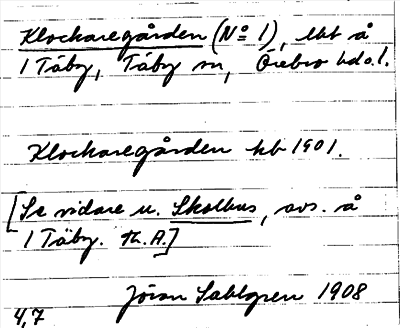 Klockaregården (No 1), lht å
1 Täby, Täby sn, Örebro hd o. l.
Klockaregården kb 1901.
[Se vidare u. Skolhus, avs. å
1 Täby. Th. A.]
Jöran Sahlgren 1908
4,7